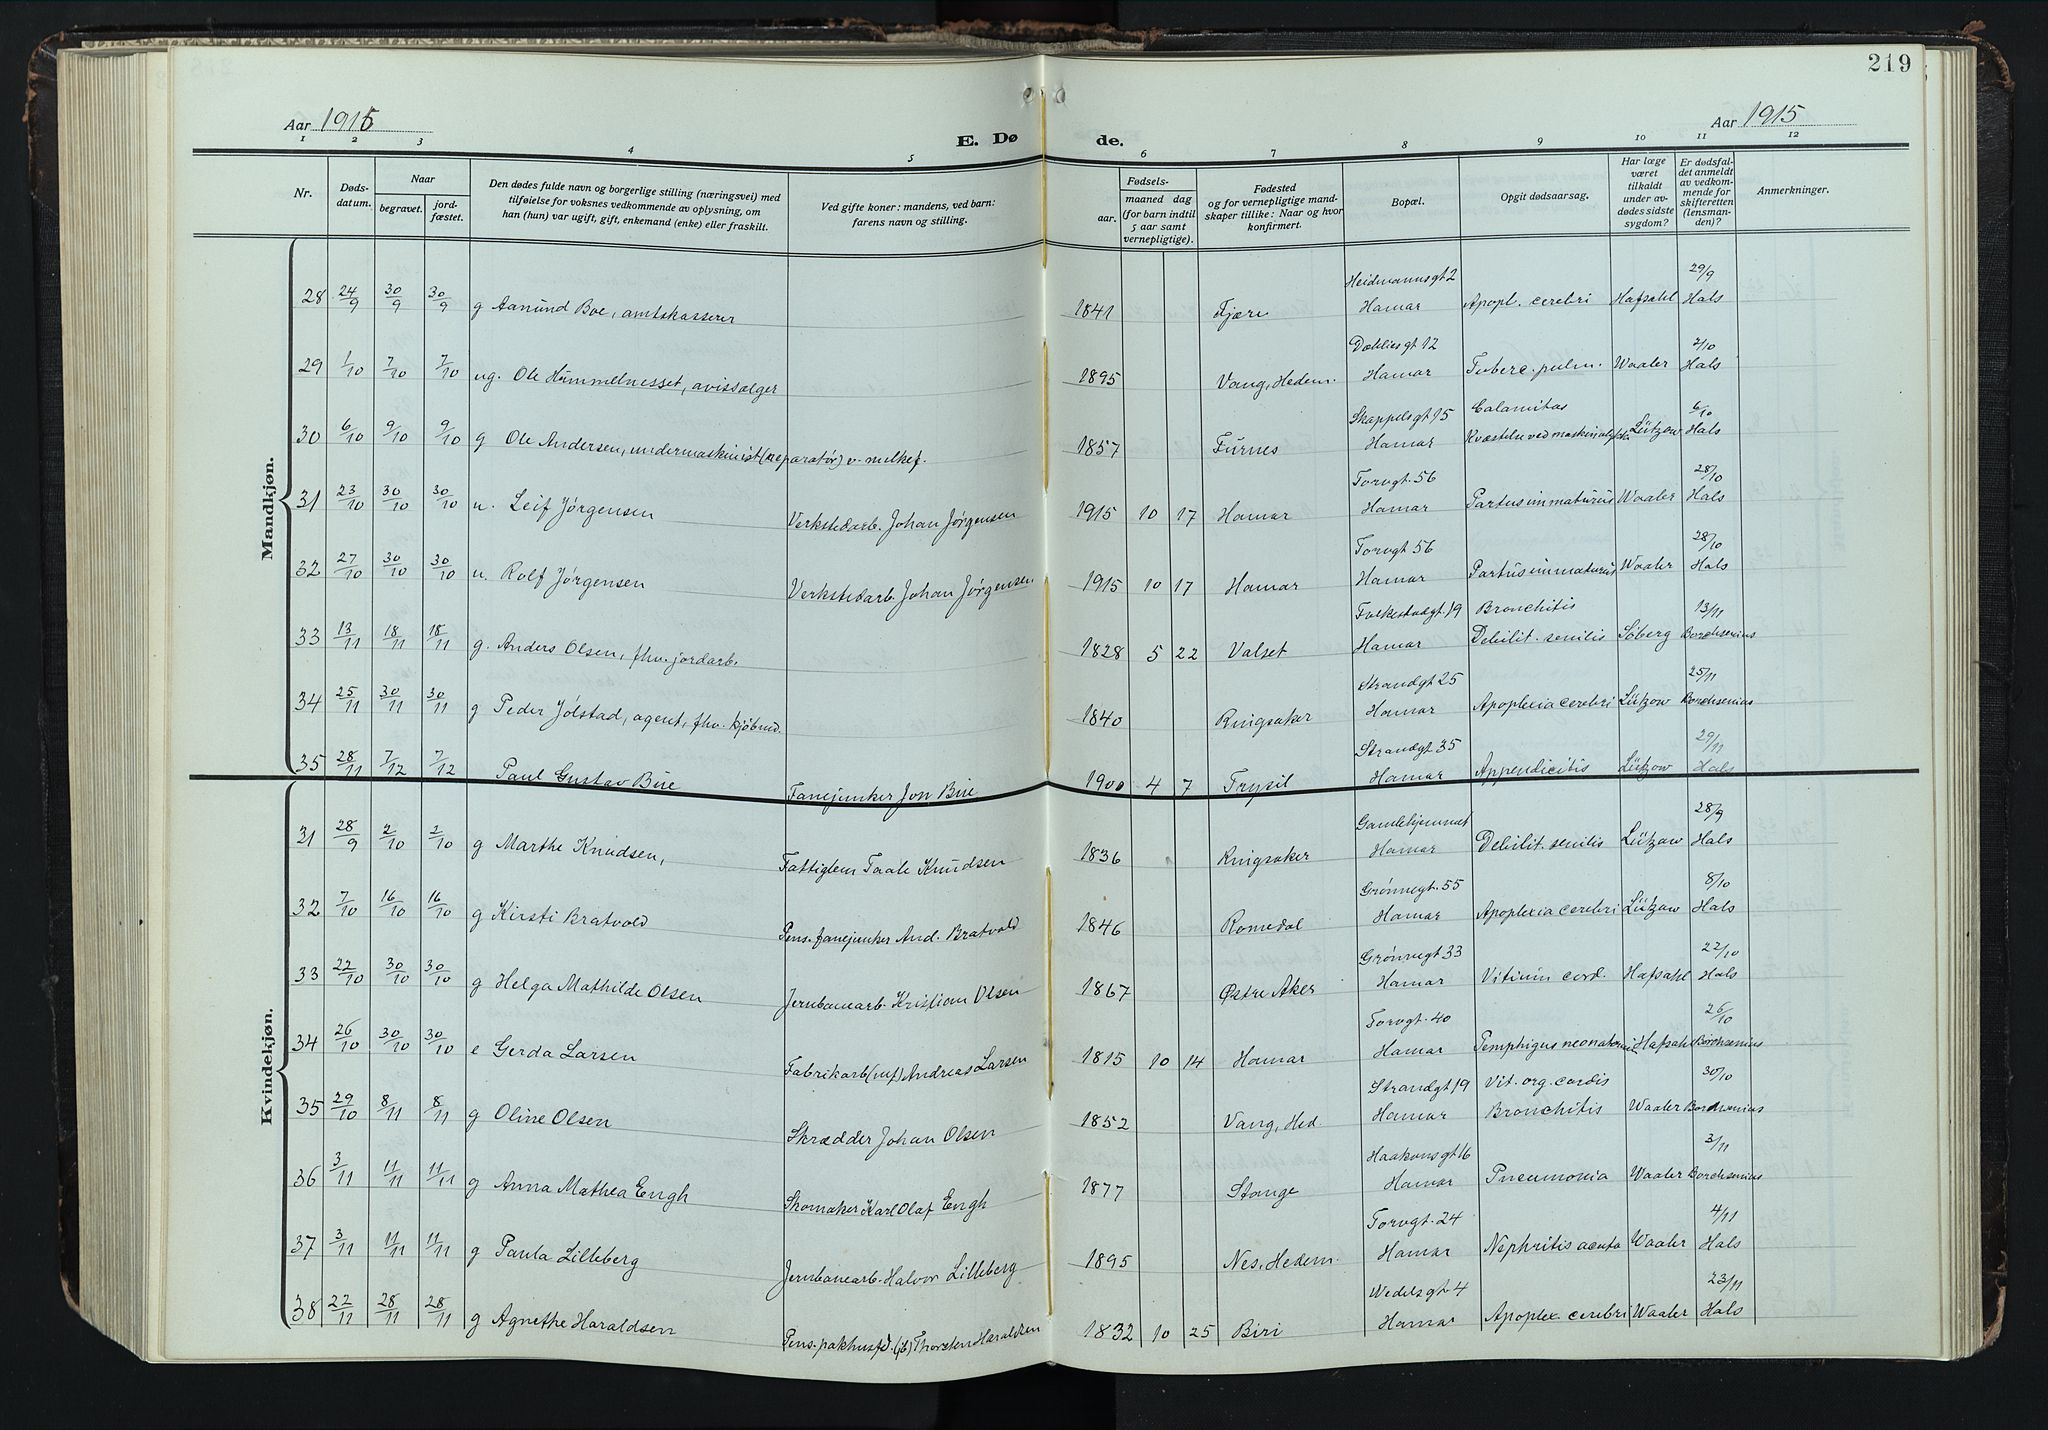 219
Aar 1915 E. Døde. Aar 1915
1 2 3 4 5 6 7 8 9 10 11 12
Nr. Døds-datum. Naar begravet. jord-fæstet. Den dødes fulde navn og borgerlige stilling (næringsvei) med tilføielse for voksnes vedkommende av oplysning, om han (hun) var ugift, gift, enkemand (enke) eller fraskilt. Ved gifte koner: mandens, ved barn: farens navn og stilling. Fødsels- aar. maaned dag (for barn indtil 5 aar samt vernepligtige). Fødested og for vernepligtige mandskaper tillike: Naar og hvor konfirmert. Bopæl. Opgit dødsaarsag. Har læge været tilkaldt under avdødes sidste sygdom? Er dødsfaldet anmeldt av vedkommende for skifteretten (lensmanden)? Anmerkninger.
Mandkjøn.
28 24/9 30/9 30/9 g Aanund Boe, amtskasserer 1841 Fjære Heidmannsgt 2 Hamar Apopl. cerebri Hafsahl 29/9 Hals
29 1/10 7/10 7/10 ug. Ole Hummelnesset, avissælger 1895 Vang, Hedem. Dæhliesgt 12 Hamar Tuberc. pulm. Waaler 2/10 Hals
30 6/10 9/10 9/10 g Ole Andersen, undermaskinist (reparatør) v. melkef. 1857 Furnes Skappelsgt 15 Hamar Calamitas Kvæstelse ved maskinulykke Lützow 6/10 Hals
31 23/10 30/10 30/10 u. Leif Jørgensen Verkstedarb. Johan Jørgensen 1915 10 17 Hamar Torvgt. 56 Hamar Partus immaturus Waaler 28/10 Hals
32 27/10 30/10 30/10 u. Rolf Jørgensen Verkstedarb. Johan Jørgensen 1915 10 17 Hamar Torvgt 56 Hamar Partus immaturus Waaler 28/10 Hals
33 13/11 18/11 18/11 g. Anders Olsen, fhv. jordarb. 1828 5 22 Valset Folkestadgt. 19 Hamar Bronchitis Debilit. senilis Søberg 13/11 Borchsenius
34 25/11 30/11 30/11 g Peder Jølstad, agent, fhv. kjøbmd. 1840 Ringsaker Strandgt 25 Hamar Apoplexia cerebri Lützow 25/11 Borchsenius
35 28/11 7/12 7/12 Paul Gustav Bue Fanejunker Jon Bue 1900 4 7 Trysil Strandgt 35 Hamar Appendicitis Lützow 29/11 Hals
Kvindekjøn.
31 28/9 2/10 2/10 g Marthe Knudsen, Fattiglem Taale Knudsen 1836 Ringsaker Gamlehjemmet Hamar Debilit. senilis Lützow 28/9 Hals
32 7/10 16/10 16/10 g Kirsti Bratvold Pens. fanejunker And. Bratvold 1846 Romedal Grønnegt. 55 Hamar Apoplexia cerebri Lützow 8/10 Hals
33 22/10 30/10 30/10 g Helga Mathilde Olsen Jernbanearb. Kristian Olsen 1867 Østre Aker Grønnegt 33 Hamar Vitium cord. Hafsahl 22/10 Hals
34 26/10 30/10 30/10 e Gerda Larsen Fabrikarb Andreas Larsen 1815 10 14 Hamar Torvgt. 40 Hamar Pemphigus neonatorum Hafsahl 26/10 Borchsenius
35 29/10 8/11 8/11 g Oline Olsen Skrædder Johan Olsen 1852 Vang, Hed. Strandgt 19 Hamar Vit. org. cordis Bronchitis Waaler 30/10 Borchsenius
36 3/11 11/11 11/11 g Anna Mathea Engh Skomaker Karl Olaf Engh 1877 Stange Haakonsgt 16 Hamar Pneumonia Waaler 3/11 Borchsenius
37 3/11 11/11 11/11 g Paula Lilleberg Jernbanearb. Halvor Lilleberg 1895 Nes, Hedem. Torvgt. 24 Hamar Nephritis acuta Waaler 4/11 Hals
38 22/11 28/11 28/11 g Agnethe Haraldsen Pens. Thorsten Haraldsen 1832 10 25 Biri Wedelsgt 4 Hamar Apoplex. cerebri Waaler 23/11 Hals